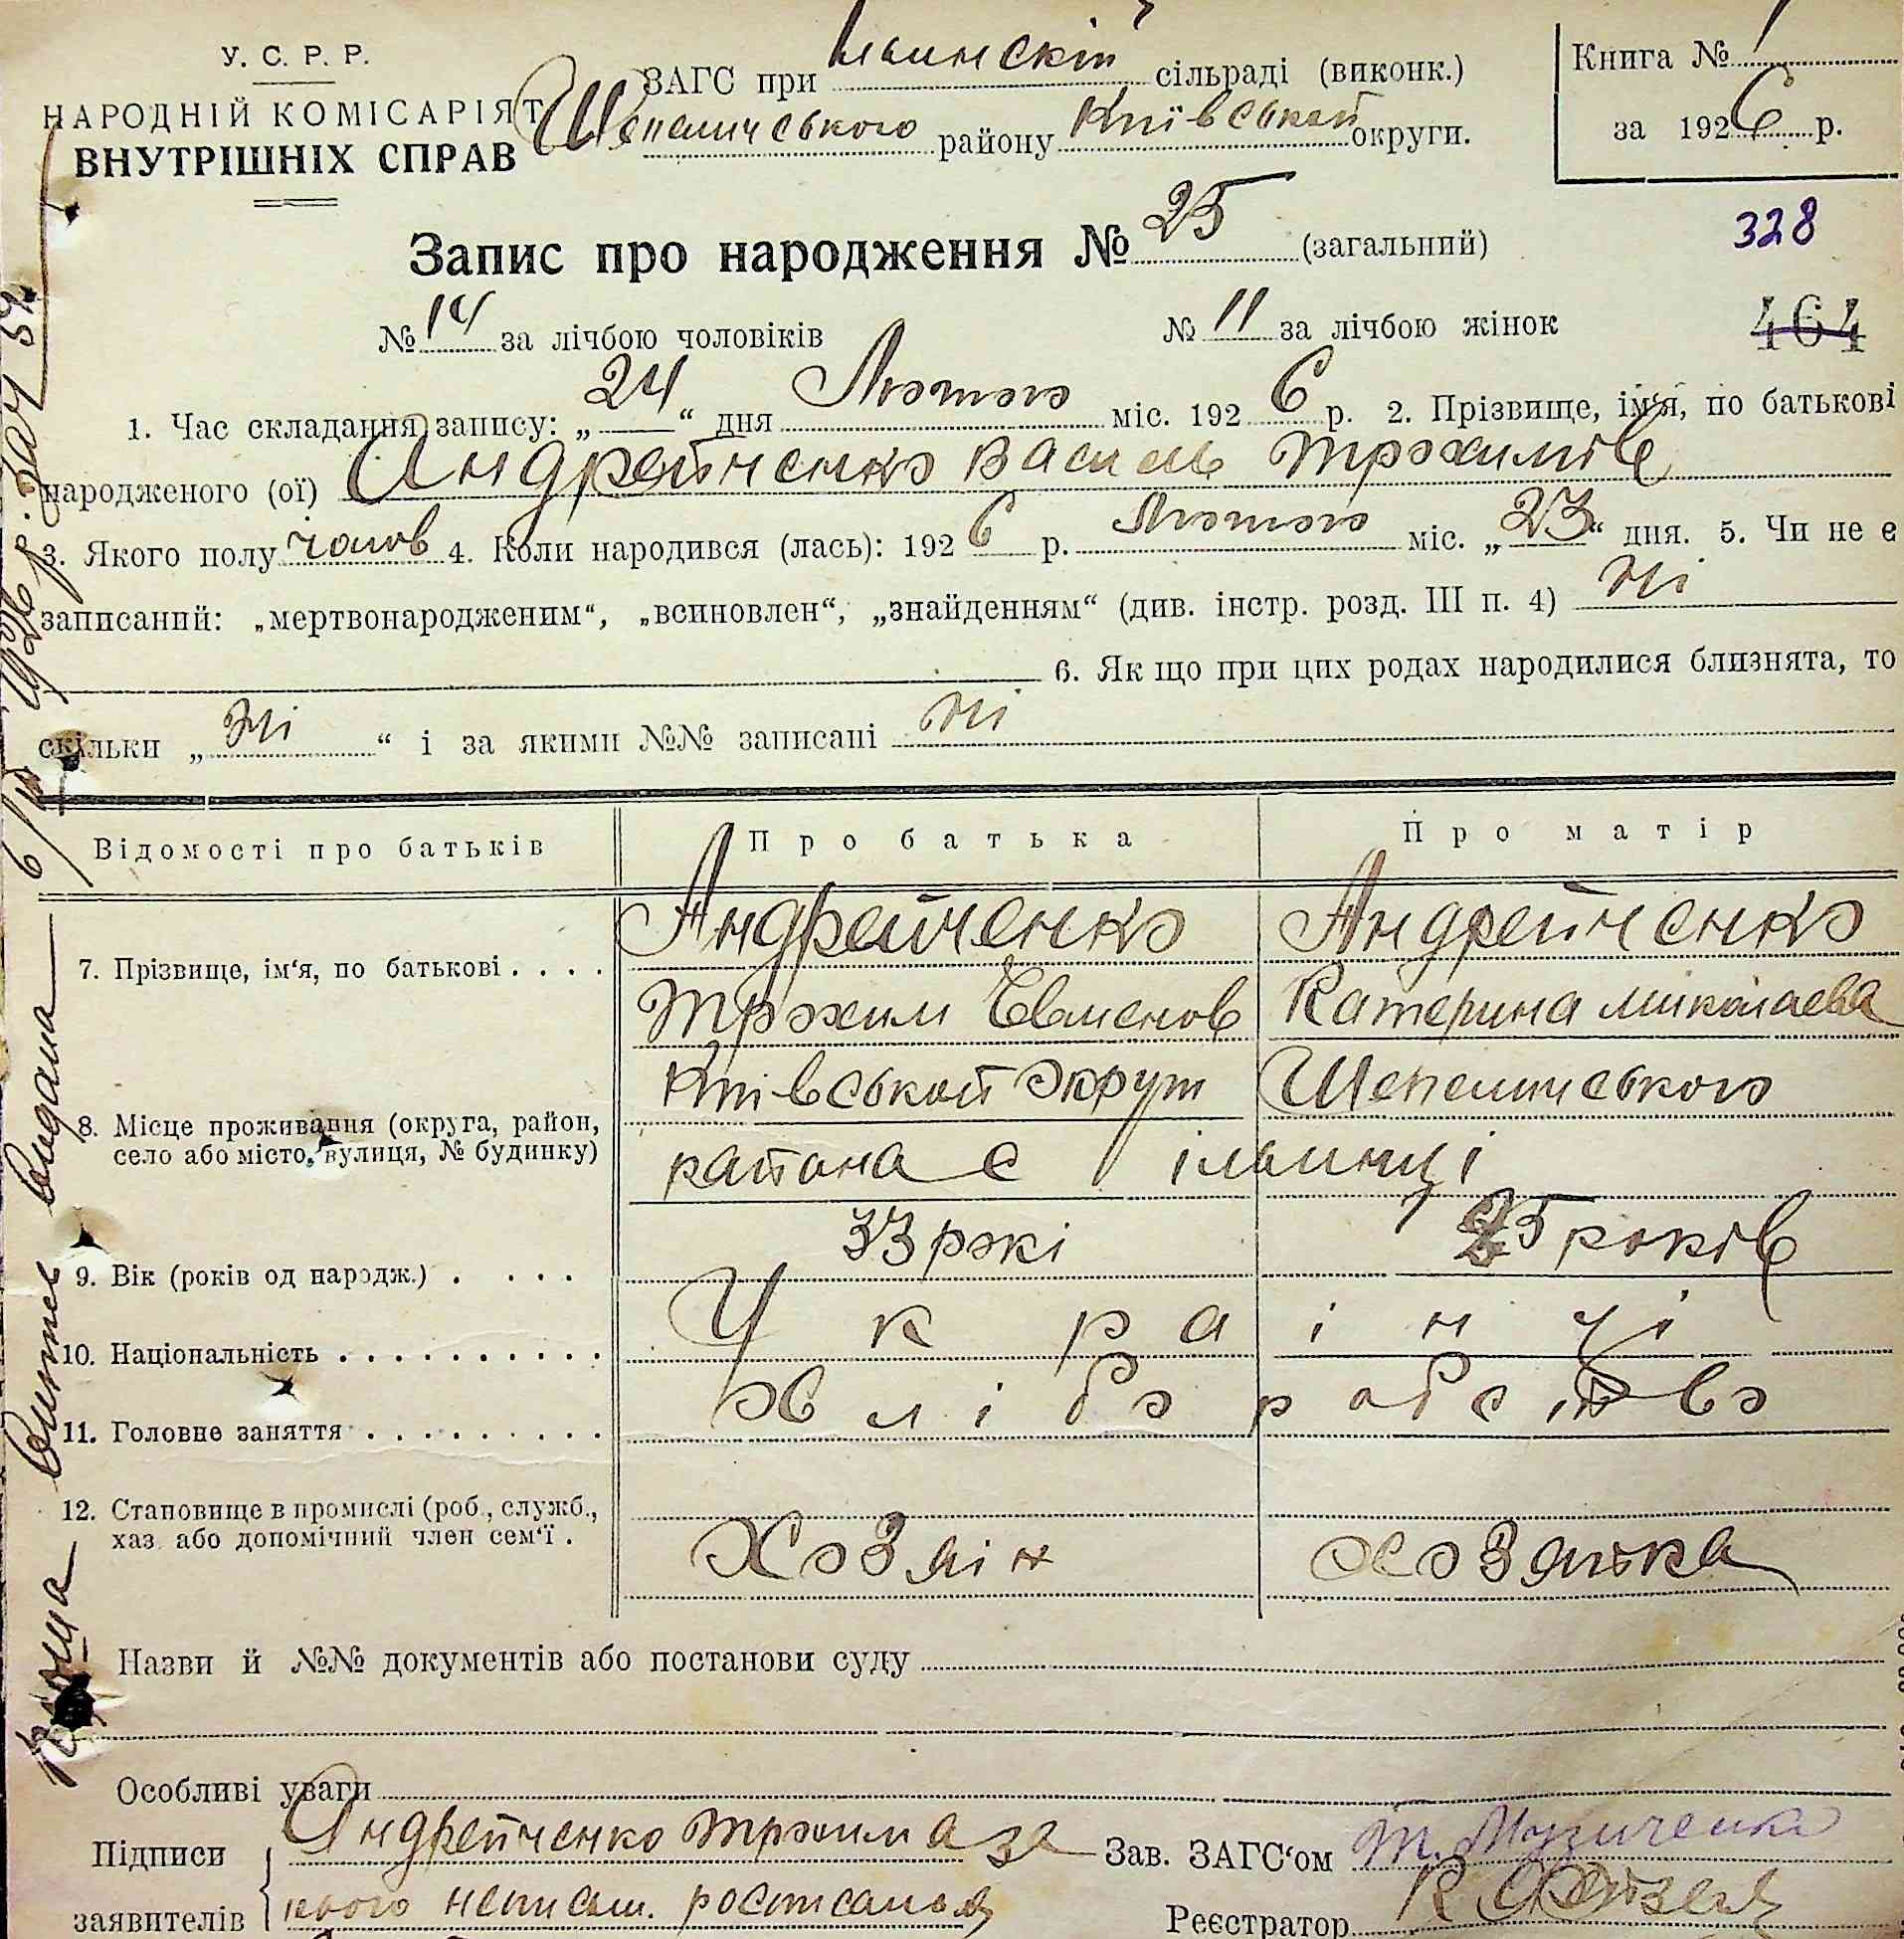 У. С. Р. Р.
НАРОДНІЙ КОМІСАРІЯТ
ВНУТРІШНІХ СПРАВ
ЗАГС при сільраді (виконк.)
Шепеличського району Київської округи.
Книга № 1
за 1926 р.
Запис про народження № 25 (загальний)
328
№ 14 за лічбою чоловіків № 11 за лічбою жінок
464
1. Час складання запису: „24“ дня Лютого міс. 1926 р. 2. Прізвище, ім‘я, по батькові
народженого (ої) Андрейченко Василь Трохимів
3. Якого полу чолов 4. Коли народився (лась): 1926 р. Лютого міс. „23“ дня. 5. Чи не є
записаний: „мертвонародженим“, „всиновлен“, „знайденням“ (див. інстр. розд. III п. 4) ні
6. Як що при цих родах народилися близнята, то
скільки „ні“ і за якими №№ записані ні
Відомості про батьків Про батька Про матір
7. Прізвище, ім‘я, по батькові . . . . Андрейченко Андрейченко
Трохим Євменов Катерина Миколаева
8. Місце проживання (округа, район, село або місто, вулиця, № будинку) Київськой округи Шепелиського
района с ільинці
9. Вік (років од народж.) . . . . 33 рокі 25 років
10. Національність . . . . . . . . . . Українці
11. Головне заняття . . . . . . . . . . хліборобство
12. Становище в промислі (роб., служб.,
хаз. або допомічний член сем‘ї . Хозяін хозяйка
Назви й №№ документів або постанови суду
Особливі уваги
Підписи Андрейченко Трохим а за
заявителів нього неписьм. росписался
Зав. ЗАГС‘ом
Реєстратор
Копія витяг видана